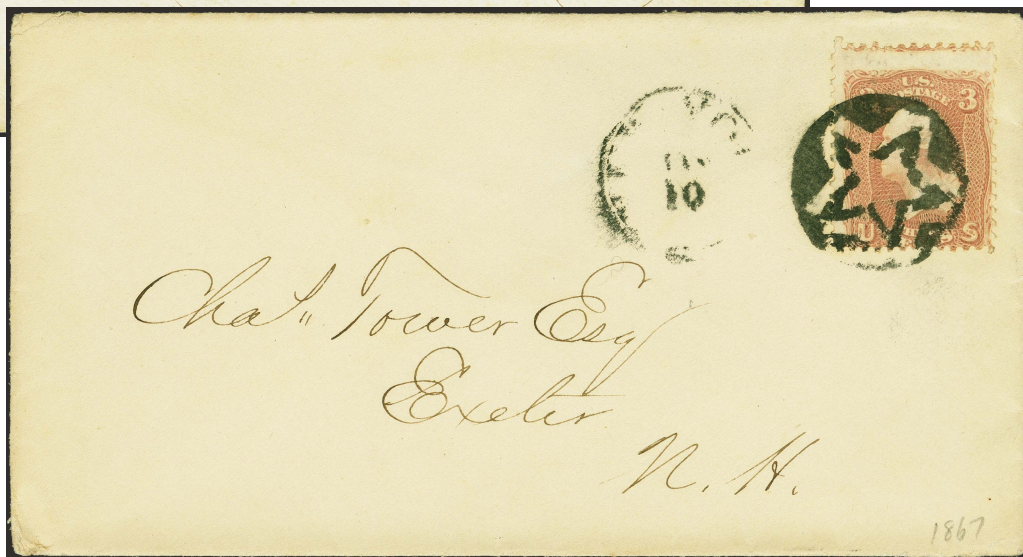 U.S.
POSTAGE
3
10
U S
Chas" Tower Esq
Exeter
N. H.
1867